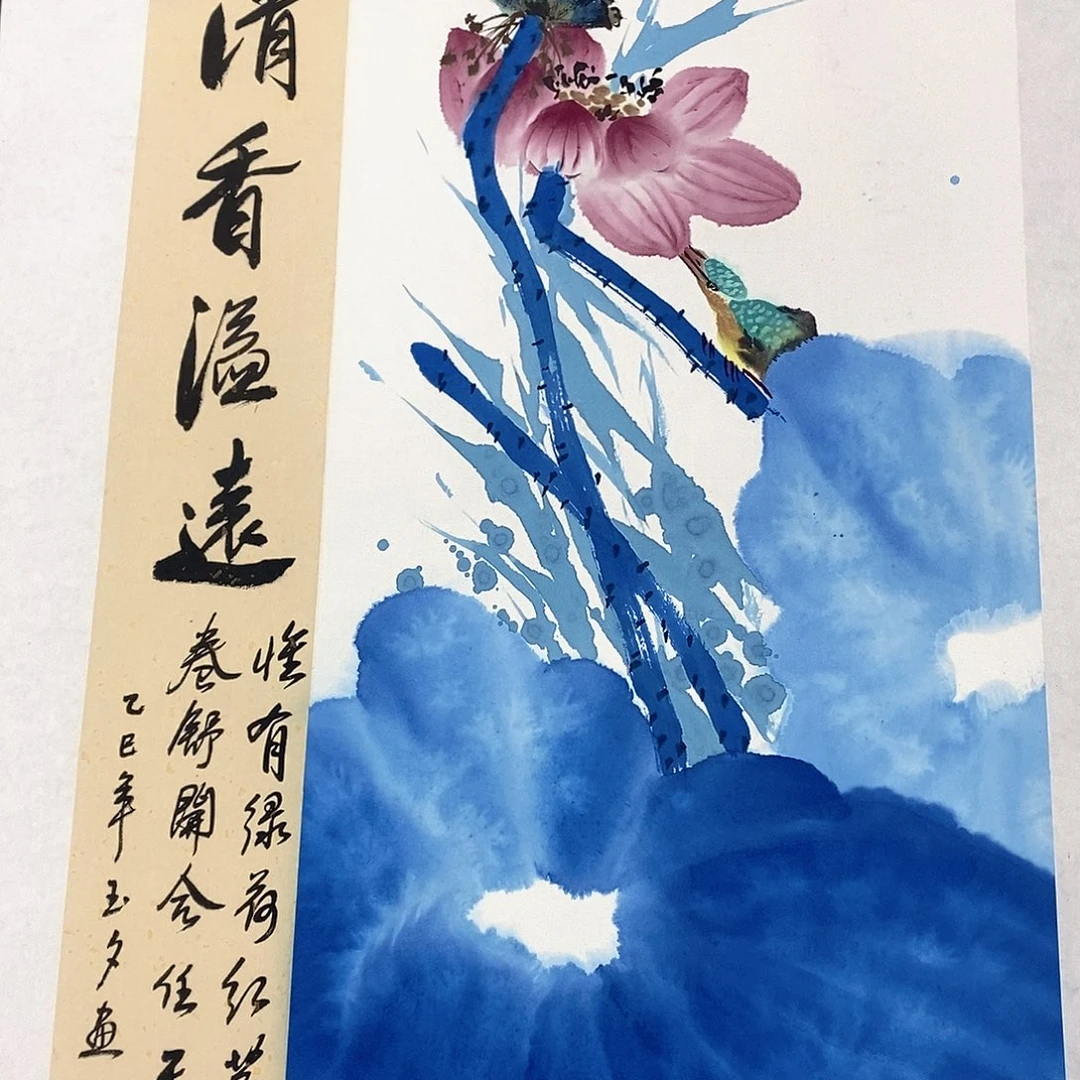 清香溢遠
惟有绿荷红
卷舒開合任天
乙巳年玉夕画